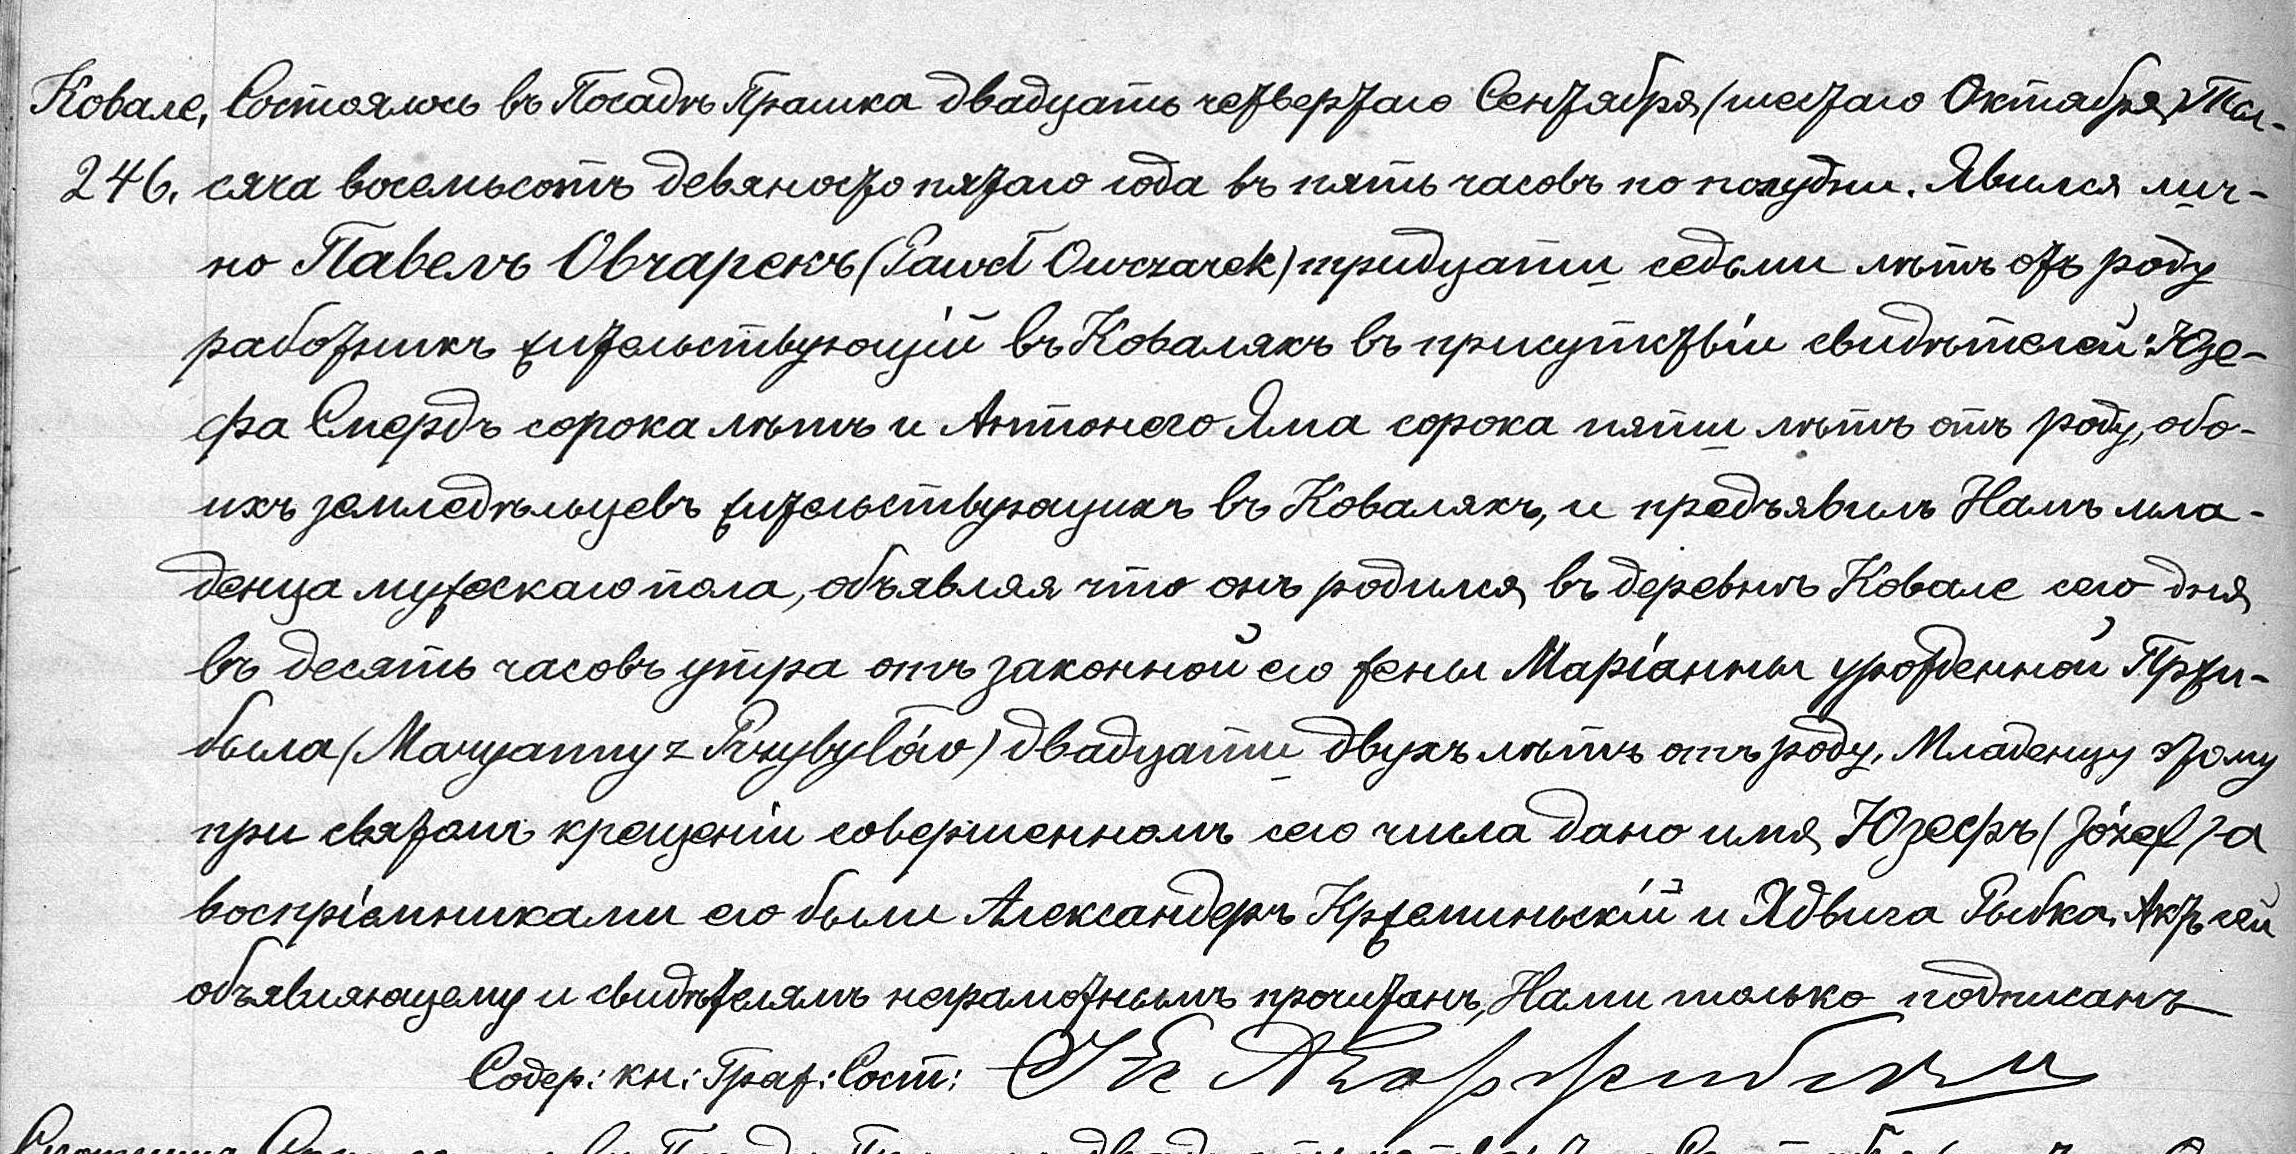 Ковале, Состоялось въ Посадѣ Прашка двадцать четвертаго Сентября (шестаго Октября) Ты-
246. сяча восемьсотъ девяносто пятаго года въ пять часовъ по полудни. Явился лич-
но Павелъ Овчарекъ (Paweł Owczarek) тридцати седьми лѣтъ отъ роду
работникъ жительствующій въ Ковалякъ въ присутствіи свидѣтелей: Юзе-
фа Смердъ сорока лѣтъ и Антонего Яма сорока пяти лѣтъ отъ роду, обо-
ихъ земледѣльцевъ жительствующихъ въ Коваляхъ, и предъявилъ Намъ мла-
денца мужескаго пола, объявляя что онъ родился въ деревнѣ Ковале сего дня
въ десять часовъ утра отъ законной его жены Маріанны урожденной Пржи-
была (Maryanny z Przybyłów) двадцати двухъ лѣтъ отъ роду. Младенцу этому
при святомъ крещеніи совершенномъ сего числа дано имя Юзефъ (Józef) а
воспріемниками его были Александеръ Кржеминьскій и Ядвига Рыбка. Актъ сей
объявляющему и свидѣтелямъ неграмотнымъ прочитанъ, Нами только подписанъ
Содер: кн: Граж: Сост:
въ